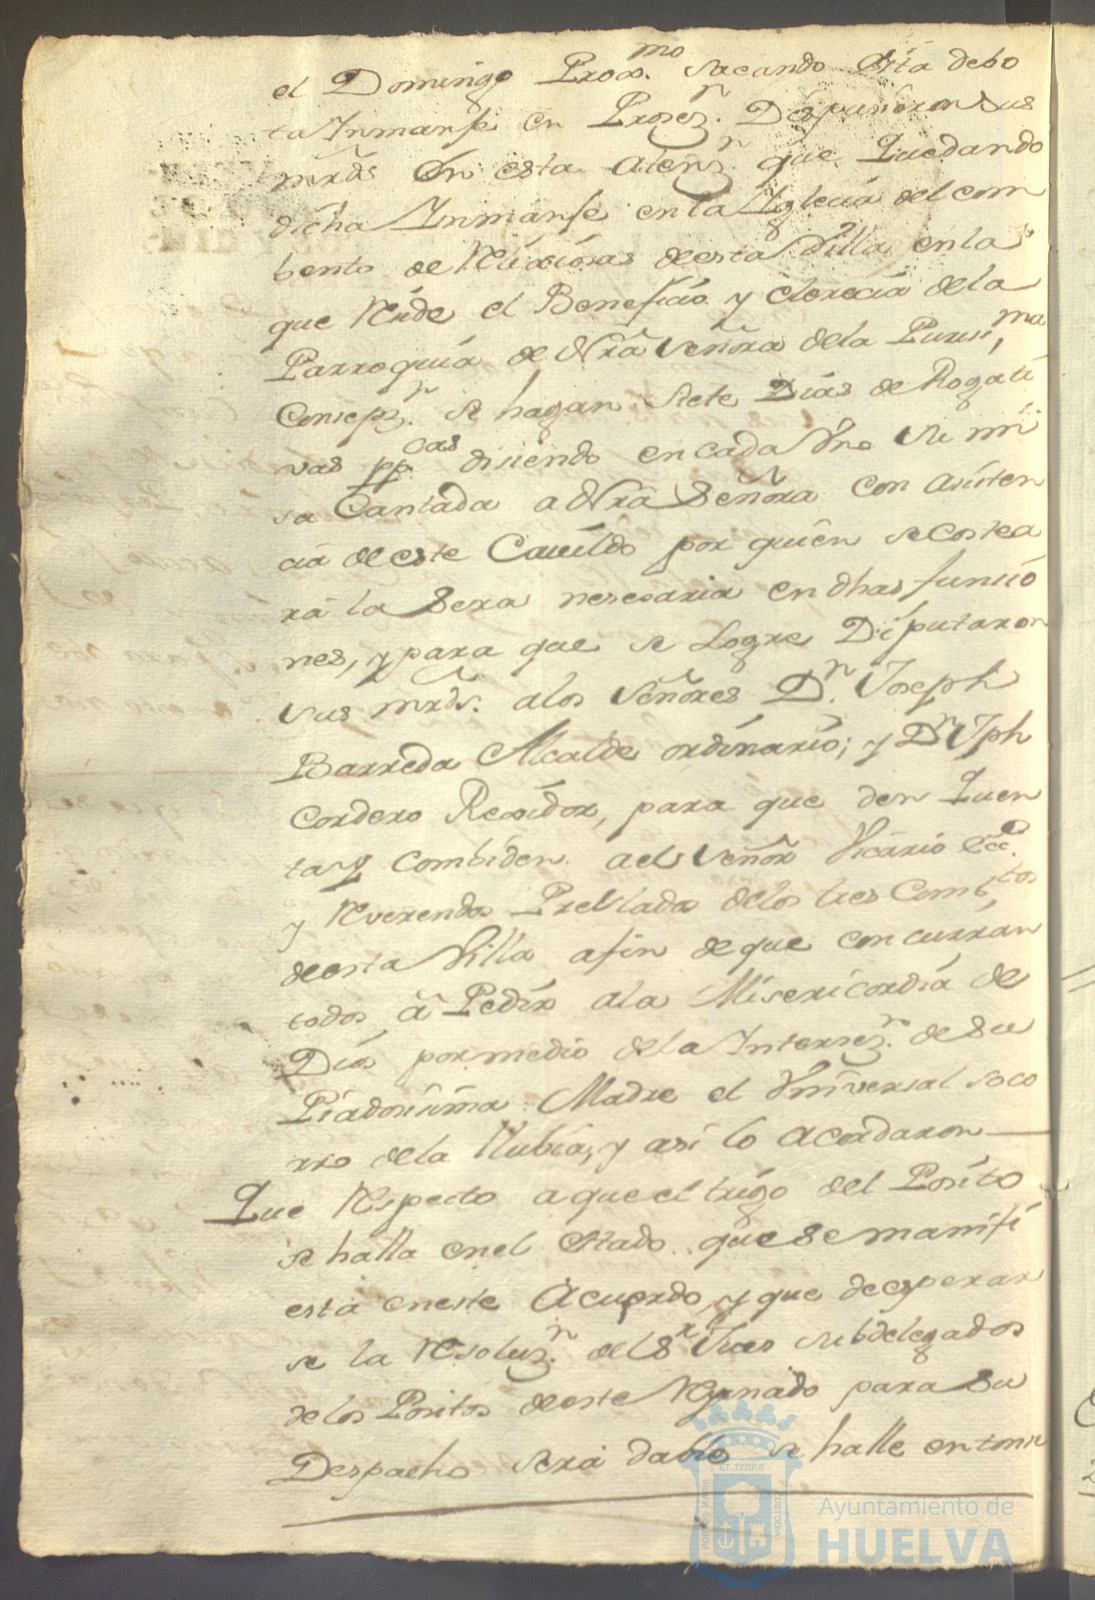 el Domingo Proxᵐᵒ. sacando esta debo
ta Ymanse en Prosezⁿ. Dispusieron sus
mrds. En esta atenzⁿ. que Quedando
dicha Ynmanse en la Yglecia del com
bento de Relixiosas de esta Villa en la
que Recide el Beneficio y clerecia de la
Parroquia de Nrã Señora de la Purisiᵐᵃ
Consepzⁿ. se hagan siete Dias de Rogati
vas ppᶜᵃˢ. disiendo en cada Vno Su mi
sa Cantada a Nrã Señora con asisten
cia de este Cavildo por quien se costea
rá la Sera nesesaria en dhas funcio
nes, y para que se Logre Diputaron
sus mrds. a los Señores Dⁿ. Joseph
Barreda Alcalde ordinario; y Dⁿ Jph
Cordero Rexidor, para que den Quen
ta y combiden. a el Señor Vicario Ecc.
y Reverendos Prelados de los tres Combᵗᵒˢ
de esta Villa a fin de que concurran
todos á Pedir a la Misericordia de
Dios por medio de la Intersezⁿ. de Su
Piadosisima Madre el Vniversal soco
rro de la Llubia, y asi lo acordaron
Que Respecto a que el trigo del Posito
se halla en el Estado que se manifi
esta en este Acuerdo, y que de esperar
se la Resoluzⁿ. del Sʳ. Juez Subdelegado
de los Positos de este Reynado para Su
Despacho será dable se halle enton
PORTUS MARIS
ET TERRÆ
CUSTODIA
Ayuntamiento de
HUELVA